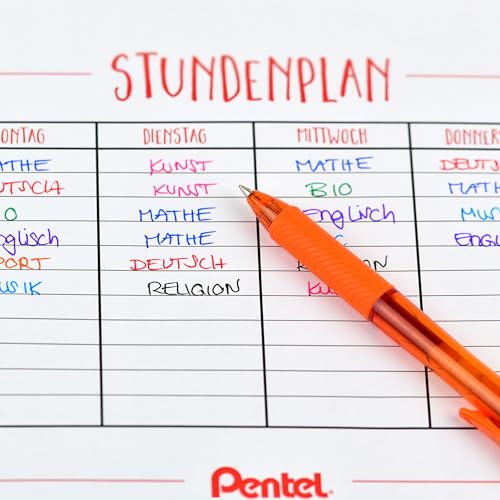 STUNDENPLAN
ONTAG DIENSTAG MITTWOCH DONNERS
ATHE KUNST MATHE DEUTS
UTSCH KUNST BIO MATH
O MATHE Englisch MUS
nglisch MATHE ENGL
PORT DEUTSCH
USIK RELIGION KU
Pentel